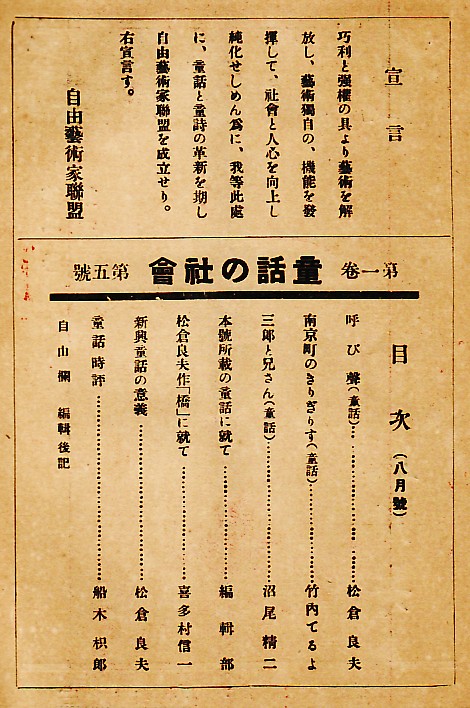 宣言
巧利と强權の具より藝術を解
放し、藝術獨自の、機能を發
揮して、社會と人心を向上し
純化せしめん爲に、我等此處
に、童話と童詩の革新を期し
自由藝術家聯盟を成立せり。
右宣言す。
自由藝術家聯盟
第一卷 童話の社會 第五號
目次(八月號)
呼び聲(童話)…………………松倉良夫
南京町のきりぎりす(童話)…………竹內てるよ
三郎と兄さん(童話)…………………沼尾精二
本號所載の童話に就て…………………編輯部
松倉良夫作「橋」に就て…………………喜多村信一
新興童話の意義…………………松倉良夫
童話時評…………………船木枳郎
自由欄 編輯後記